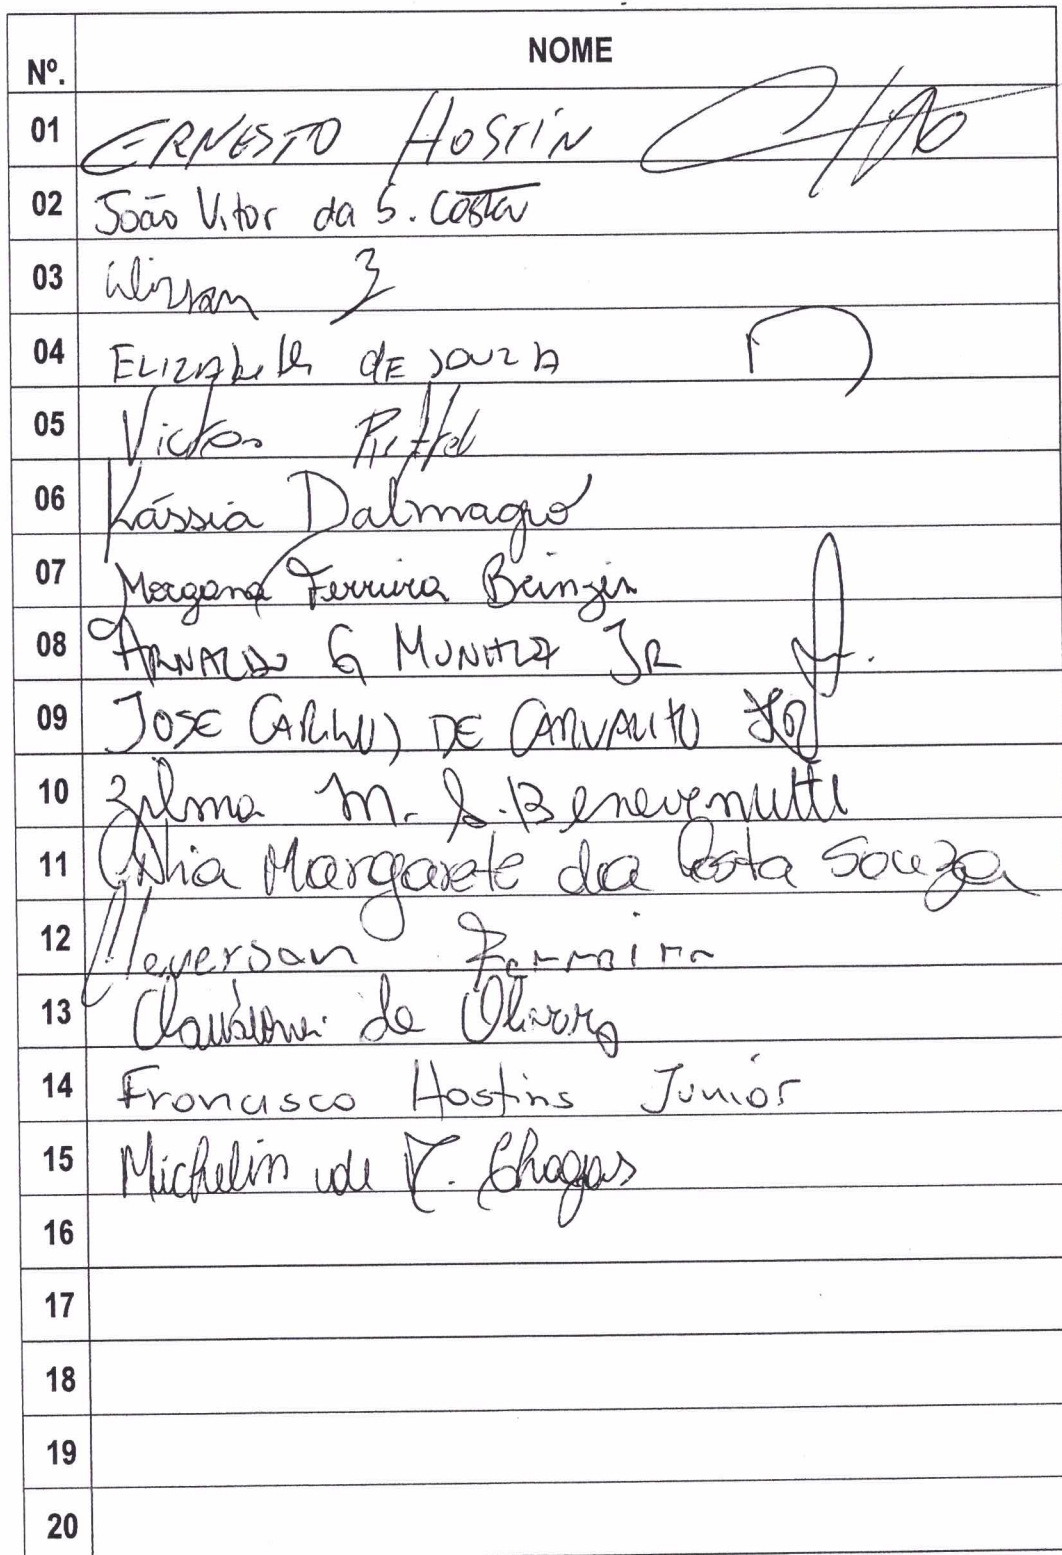 Nº. NOME
01 ERNESTO HOSTIN
02 João Vitor da S. Costa
03
04 ELIZABETH DE SOUZA
05 Victor
06 Kássia Dalmagro
07 Morgana Ferreira
08 ARNALDO G MUNHOZ JR
09 JOSE CARLOS DE CARVALHO JR
10 Zilma M. S. Benevenutti
11 Margarete da Costa Souza
12 Cleverson Ferreira
13 de Oliveira
14 Francisco Hostins Junior
15 Michelin de Chagas
16
17
18
19
20